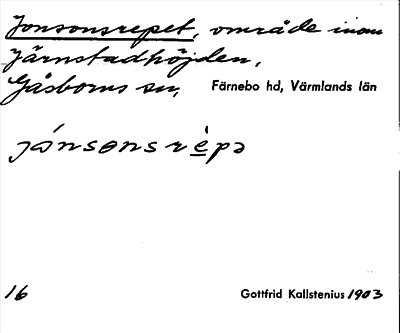 Jonsonsrepet, område inom
Järnstadhöjden,
Gåsborns sn, Färnebo hd, Värmlands län
jånsɵns rèpə
16 Gottfrid Kallstenius 1903